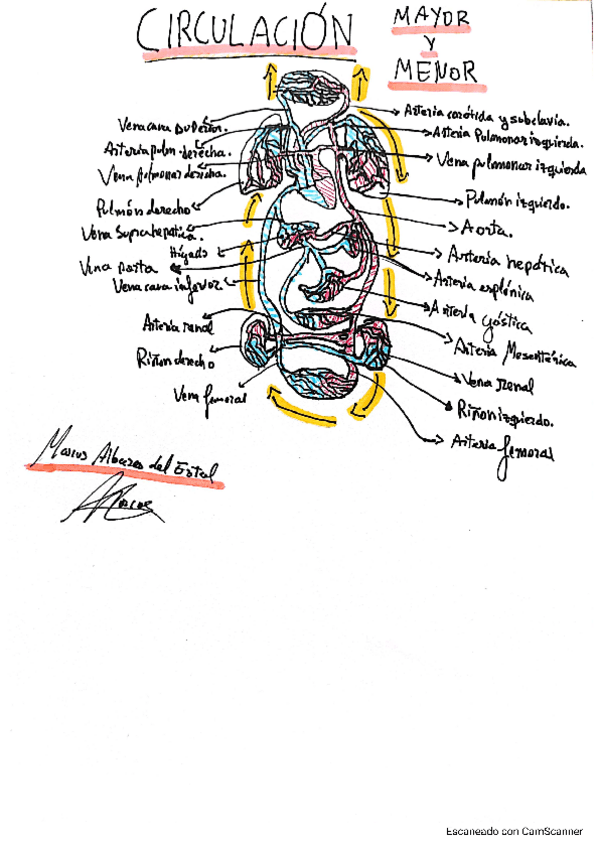 CIRCULACIÓN
MAYOR
Y
MENOR
Vena cava superior.
Arteria pulm. derecha.
Vena pulmonar derecha.
Pulmón derecho
Vena Suprahepatica.
Hígado
Vena porta
Vena cava inferior
Arteria renal
Riñon derecho
Vena femoral
Arteria carótida y subclavia.
Arteria Pulmonar izquierda.
Vena pulmonar izquierda
Pulmón izquierdo.
Aorta.
Arteria hepática
Arteria esplénica
Arteria gástica
Arteria Mesentérica
Vena renal
Riñon izquierdo.
Arteria femoral
Marcos del Estal
Marcos
Escaneado con CamScanner